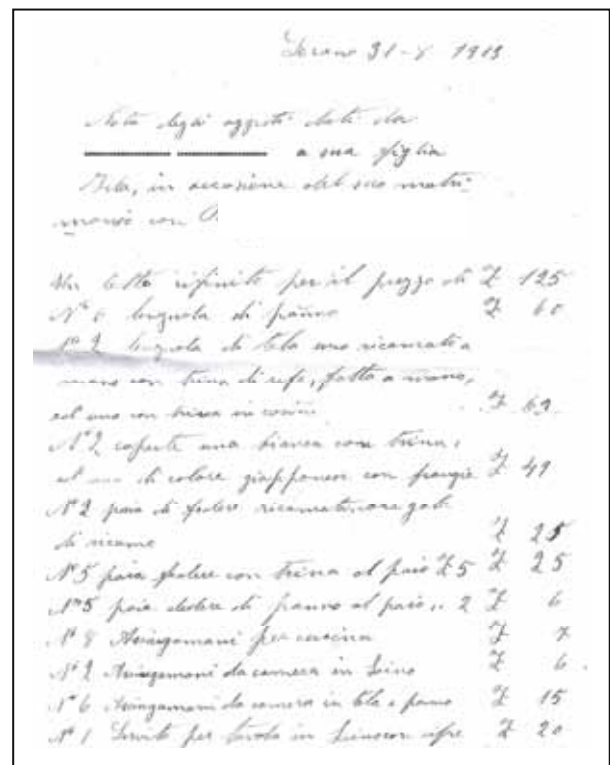 31-8 1913
Nota degli oggetti dati da
a sua figlia
in occasione del suo matri-
monio con
Un letto rifinito per il prezzo di £ 125
N° 6 lenzuola di panno £ 60
N° 2 lenzuola di tela uno ricamato a
mano con trina di refe, fatta a mano,
ed uno con trina in £ 69
N° 2 coperte una bianca con trina,
ed una di colore giapponese con frangie £ 49
N° 2 paia di federe ricamate, con
di ricamo £ 25
N° 5 paia federe con trina al paio £ 5 £ 25
N° 5 paia di panno al paio " 2 £
N° 8 Asciugamani per cucina £ 7
N° 2 Asciugamani da camera in Lino £ 6
N° 6 Asciugamani da camera in tela e panno £ 15
N° 1 Servito per tavola in £ 20